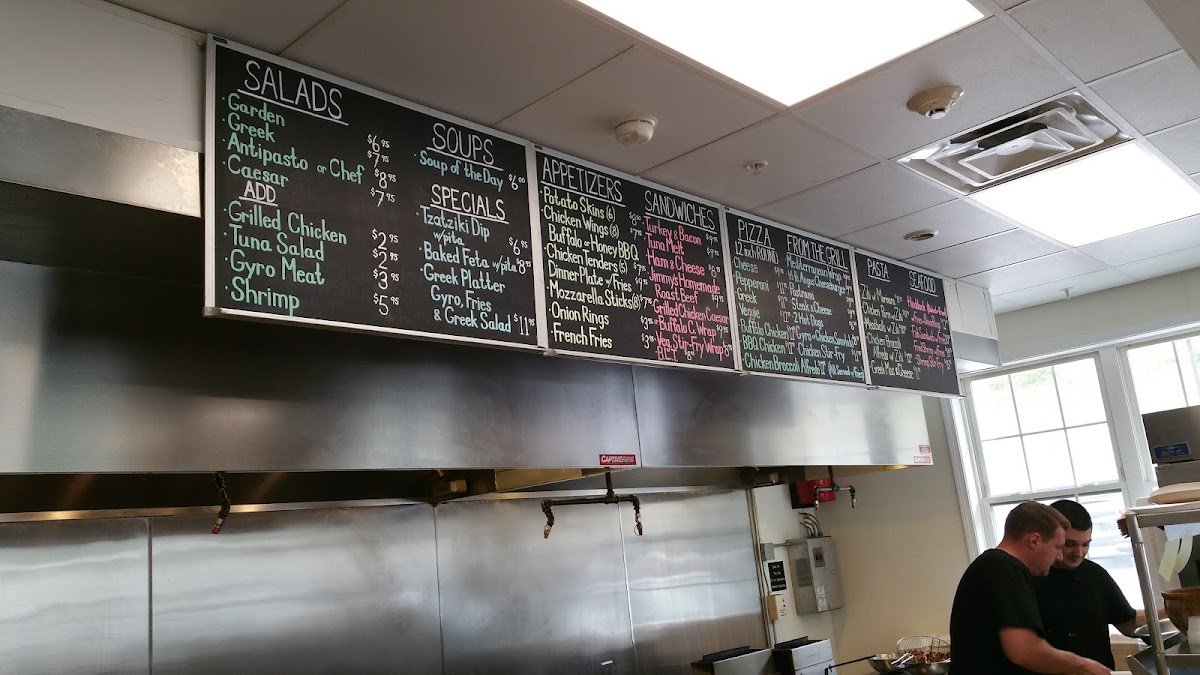 SALADS
· Garden $6.95
· Greek $7.95
· Antipasto or Chef $8.95
· Caesar $7.95
ADD
· Grilled Chicken $2.95
· Tuna Salad $2.95
· Gyro Meat $3.95
· Shrimp $5.95
SOUPS
· Soup of the Day $6.00
SPECIALS
· Tzatziki Dip
w/pita $6.95
· Baked Feta w/pita $8.95
· Greek Platter
Gyro, Fries
& Greek Salad $11.95
APPETIZERS
· Potato Skins (6)
· Chicken Wings (8)
Buffalo or Honey BBQ
· Chicken Tenders (5)
Dinner Plate w/Fries
· Mozzarella Sticks (8)
· Onion Rings
· French Fries
SANDWICHES
Turkey & Bacon
Tuna Melt
Ham & Cheese
Jimmy's Homemade
Roast Beef
Grilled Chicken Caesar
or Buffalo C. Wrap
Veg. Stir-Fry Wrap
BLT
PIZZA
12 inch ROUND
Cheese
Pepperoni
Greek
Veggie
Buffalo Chicken
BBQ Chicken
Chicken Broccoli Alfredo
FROM THE GRILL
Mediterranean Wrap
Angus Cheeseburger
Pastrami
Steak & Cheese
2 Hot Dogs
Gyro or Chicken Souvlaki
Chicken Stir-Fry
(All Served w/Fries)
PASTA
Chicken Broccoli
Alfredo w/ Ziti
Greek Mac & Cheese
SEAFOOD
CAPTIVEAIRE